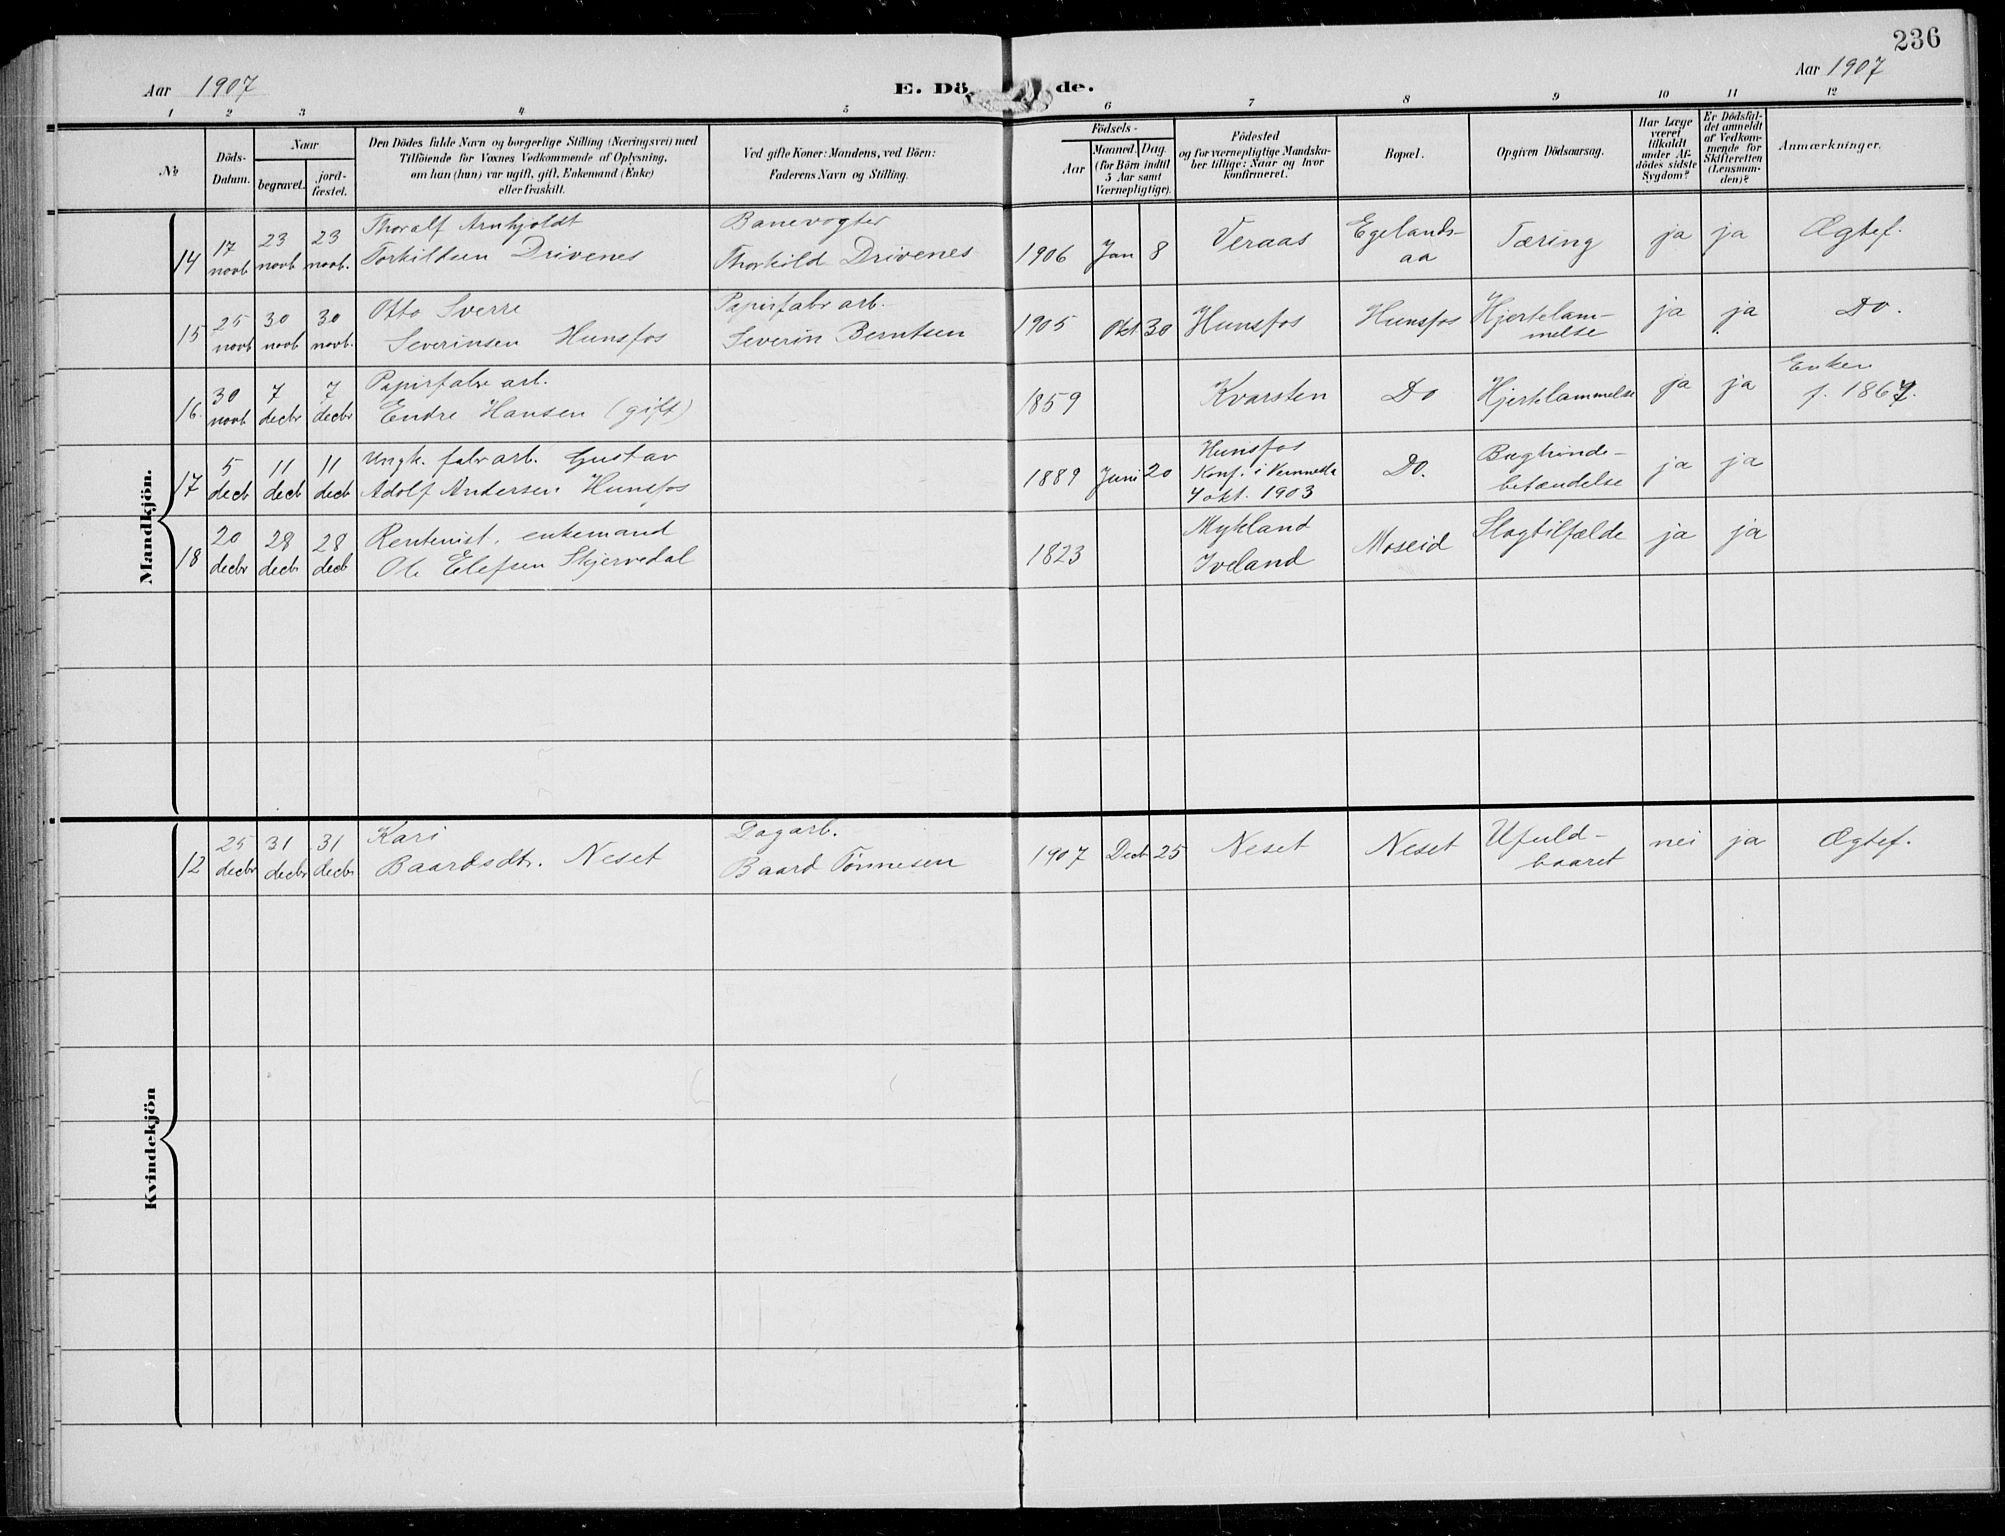 236
Aar 1907
E. Dö de.
Aar 1907
1 2 3 4 5 6 7 8 9 10 11 12
No
Döds-
Datum.
Naar
begravet.
jord-
fæstet.
Den Dödes fulde Navn og borgerlige Stilling (Næringsvei) med
Tilföiende for Voxnes Vedkommende af Oplysning,
om han (hun) var ugift, gift, Enkemand (Enke)
eller fraskilt.
Ved gifte Koner: Mandens, ved Börn:
Faderens Navn og Stilling.
Födsels-
Aar
Maaned. Dag.
(for Börn indtil
5 Aar samt
Værnepligtige).
Födested
og for værnepligtige Mandska-
ber tillige: Naar og hvor
konfirmeret.
Bopæl.
Opgiven Dödsaarsag.
Har Læge
været
tilkaldt
under Af-
dödes sidste
Sygdom?
Er Dödsfal-
det anmeldt
af Vedkom-
mende for
Skifteretten
(Lensman-
den)?
Anmærkninger.
Mandkjön.
14
17
novb
23
novb
23
novb.
Thoralf Arnhjoldt
Torkildsen Drivenes
Banevogter
Thorkild Drivenes
1906 Jan 8
Veraas
Egelands-
aa
Tæring
ja ja
Ægtef.
15
25
novb
30
novb
30
novb.
Otto Sverre
Severinsen Hunsfos
Papirfabr arb.
Severin Berntsen
1905 Okt. 30
Hunsfos
Hunsfos
Hjertelam-
melse
ja ja
Do.
16.
30
novb.
7
decbr
7
decbr
Papirfabr arb.
Endre Hansen (gift)
1859
Kvarsten
Do
Hjertelammelse
ja ja
Enken
f. 1867.
17
5
decb
11
decb
11
decb
Ungk. fabr arb. Gustav
Adolf Andersen Hunsfos
1889 Juni 20
Hunsfos
Konf. i Vennesla
4 okt. 1903
Do.
Bughinde-
betændelse
ja ja
18
20
decbr
28
decb
28
decb
Rentenist, enkemand
Ole Elefsen Skjervedal
1823
Mykland
Iveland
Moseid
Slagtilfælde
ja ja
Kvindekjön
12
25
decbr
31
decbr
31
decbr
Kari
Baardsdt. Neset
Dagarb.
Baard Tønnesen
1907 Decb 25
Neset
Neset
Ufuld-
baaret
nei ja
Ægtef.